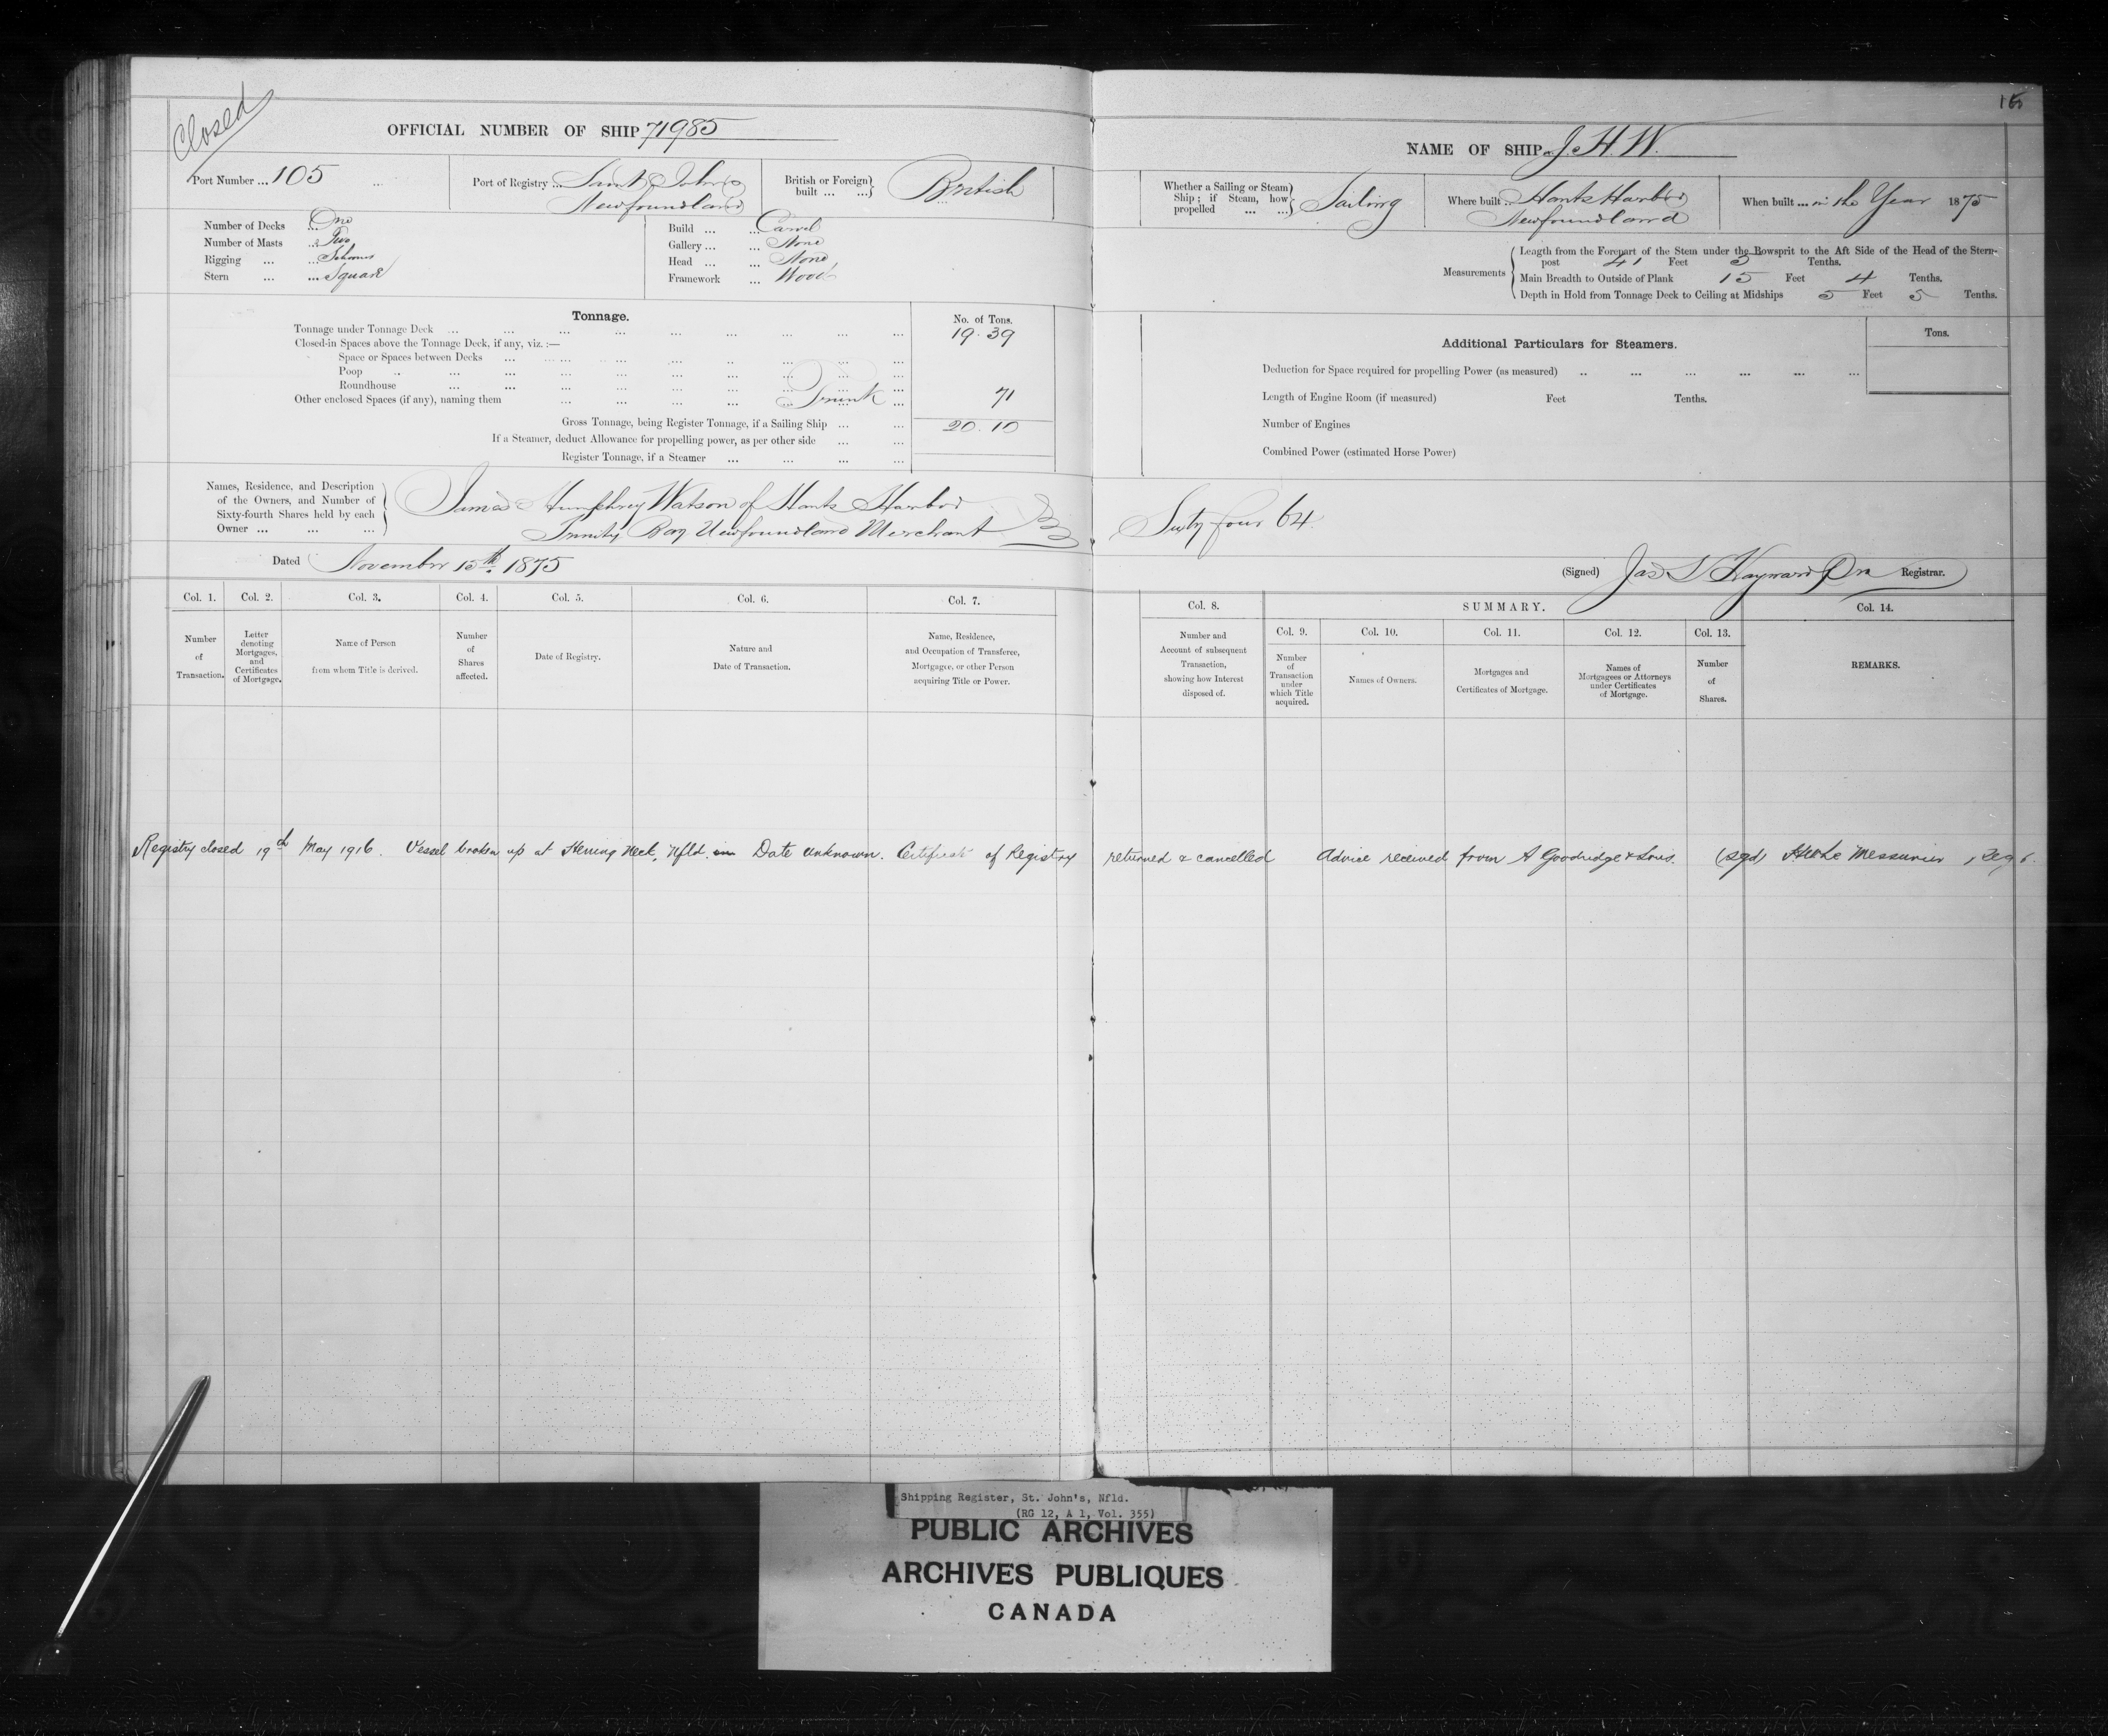 Closed
OFFICIAL NUMBER OF SHIP 71985
Port Number ... 105
Port of Registry ... Saint Johns
Newfoundland
British or Foreign built ... ... British
Number of Decks ... One
Number of Masts ... Two
Rigging ... ... Schooner
Stern ... ... Square
Build ... ... Carvel
Gallery ... ... None
Head ... ... None
Framework ... Wood
Tonnage.
No. of Tons.
Tonnage under Tonnage Deck ... 19.39
Closed-in Spaces above the Tonnage Deck, if any, viz. :—
Space or Spaces between Decks ...
Poop ...
Roundhouse ...
Other enclosed Spaces (if any), naming them ... Trunk ... 71
Gross Tonnage, being Register Tonnage, if a Sailing Ship ... ... 20.10
If a Steamer, deduct Allowance for propelling power, as per other side ... ...
Register Tonnage, if a Steamer ... ... ... ...
Names, Residence, and Description of the Owners, and Number of Sixty-fourth Shares held by each Owner ... ... ...
James Humphrey Watson of Hants Harbor
Trinity Bay Newfoundland Merchant
Dated November 15th 1875
Col. 1. Col. 2. Col. 3. Col. 4. Col. 5. Col. 6. Col. 7.
Number of Transaction.
Letter denoting Mortgages, and Certificates of Mortgage.
Name of Person from whom Title is derived.
Number of Shares affected.
Date of Registry.
Nature and Date of Transaction.
Name, Residence, and Occupation of Transferee, Mortgagee, or other Person acquiring Title or Power.
NAME OF SHIP J. H. W.
Whether a Sailing or Steam Ship ; if Steam, how propelled ... ... Sailing
Where built ... Hants Harbor
Newfoundland
When built ... in the Year 1875
Measurements
Length from the Forepart of the Stem under the Bowsprit to the Aft Side of the Head of the Stern-
post 41 Feet 3 Tenths.
Main Breadth to Outside of Plank 15 Feet 4 Tenths.
Depth in Hold from Tonnage Deck to Ceiling at Midships 5 Feet 5 Tenths.
Additional Particulars for Steamers.
Tons.
Deduction for Space required for propelling Power (as measured) ...
Length of Engine Room (if measured) Feet Tenths.
Number of Engines
Combined Power (estimated Horse Power)
Sixty four 64
(Signed) Jas S Hayward Registrar.
Col. 8. SUMMARY. Col. 14.
Col. 9. Col. 10. Col. 11. Col. 12. Col. 13.
Number and Account of subsequent Transaction, showing how Interest disposed of.
Number of Transaction under which Title acquired.
Names of Owners.
Mortgages and Certificates of Mortgage.
Names of Mortgagees or Attorneys under Certificates of Mortgage.
Number of Shares.
REMARKS.
Registry closed 19th May 1916. Vessel broken up at Herring Neck, Nfld. in Date unknown. Certificate of Registry returned & cancelled Advice received from A Goodridge & Sons. (sgd) H W Le Messurier, Reg
Shipping Register, St. John's, Nfld.
(RG 12, A 1, Vol. 355)
PUBLIC ARCHIVES
ARCHIVES PUBLIQUES
CANADA